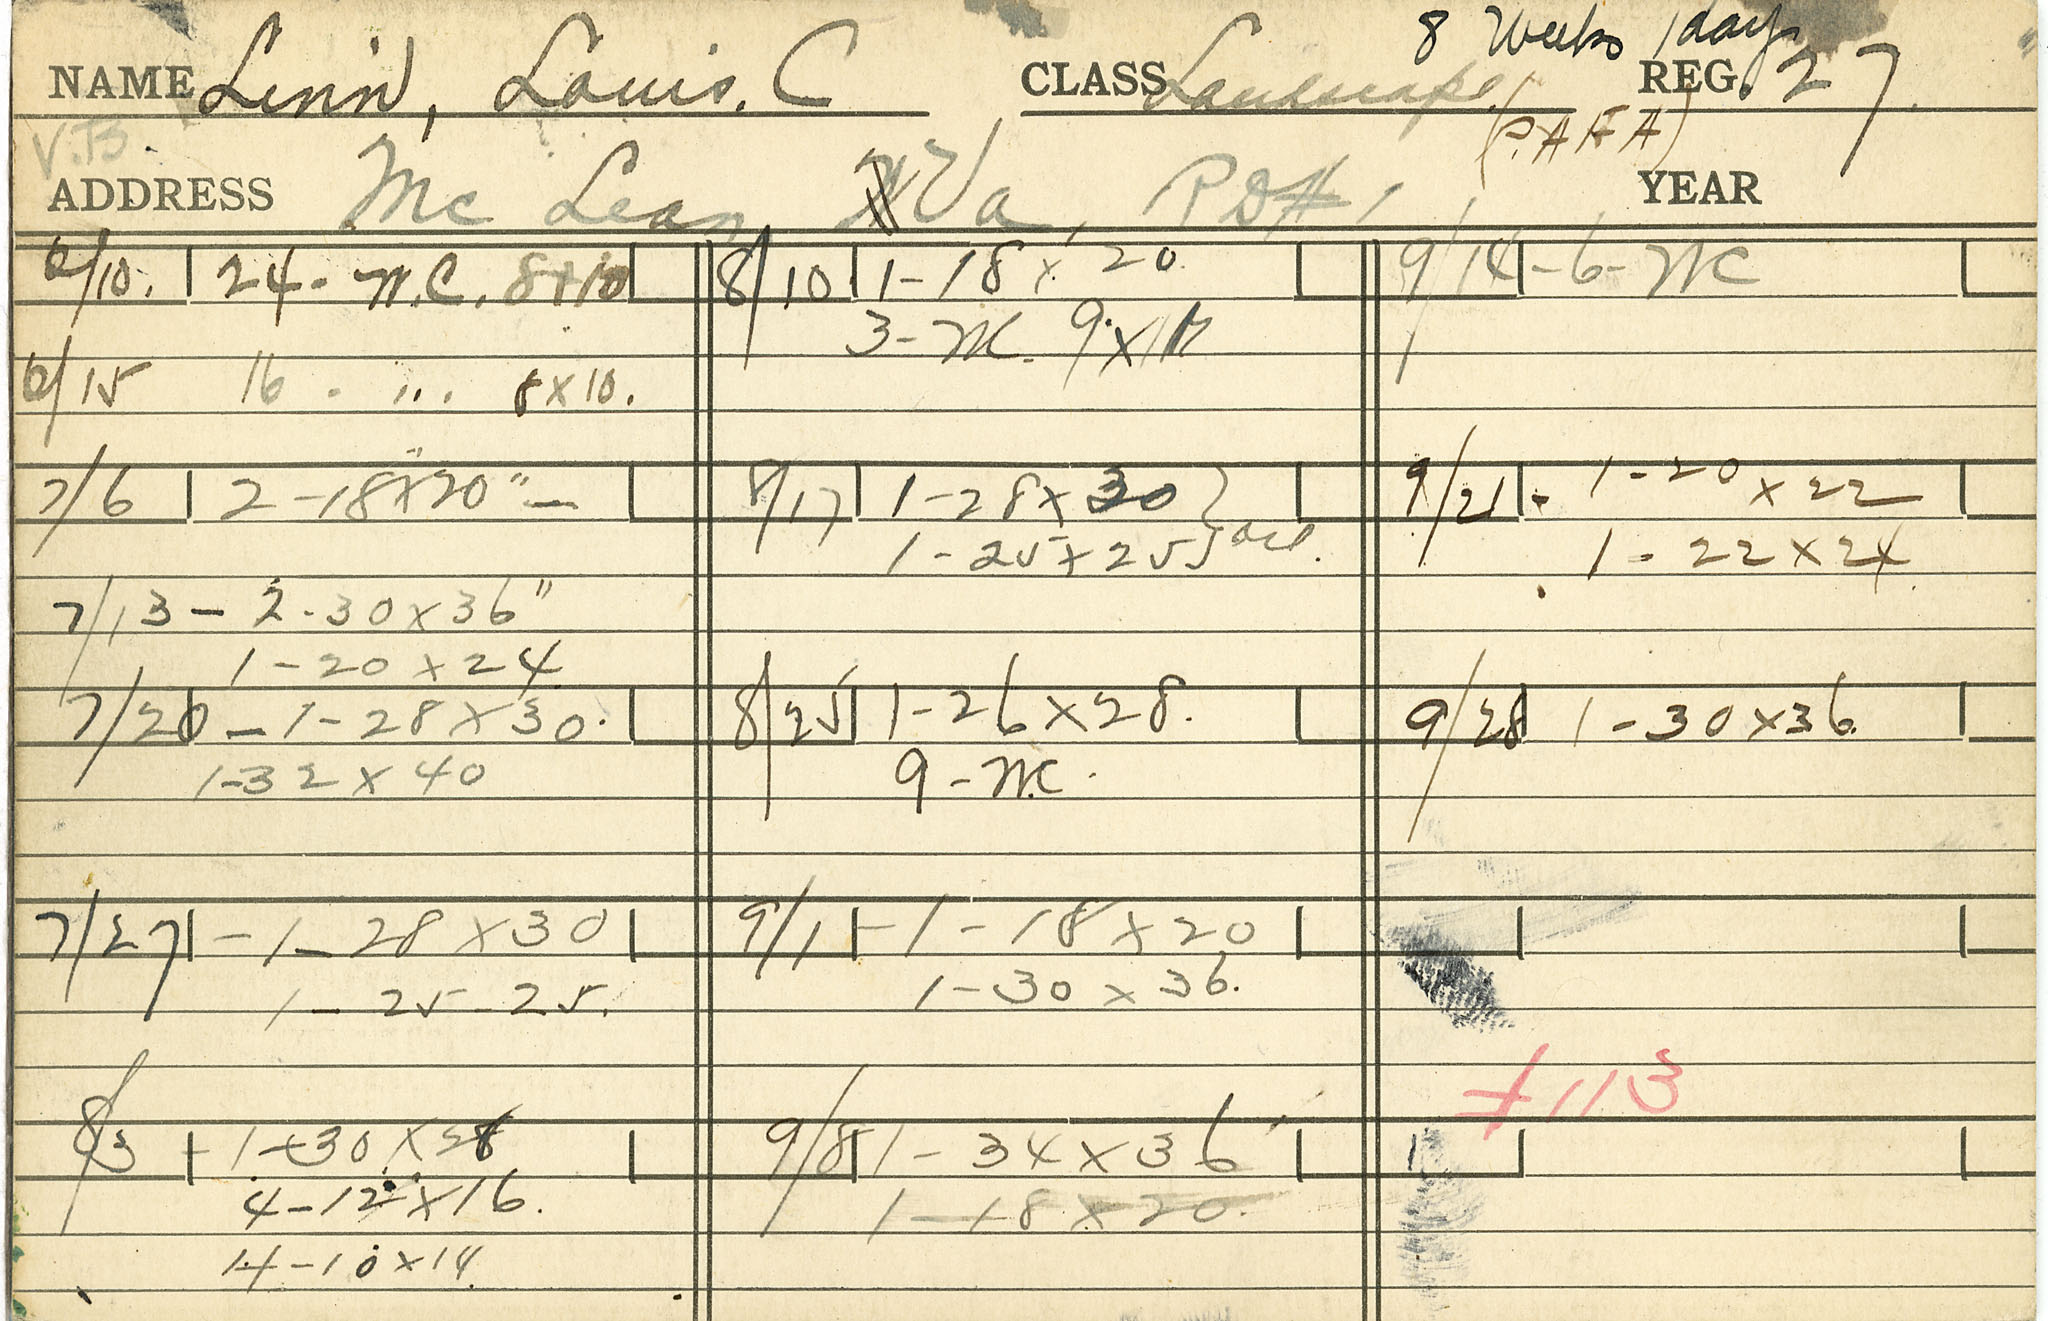 8 Weeks 1 day
NAME Linn, Louis. C CLASS Landscape REG. 27.
(P.A.F.A)
V.B.
ADDRESS Mc Lean Va, RD# 1 YEAR
6/10. 24 - W.C. 8x10
6/15 16 - ". 8x10.
7/6 2 - 18" x 20" -
7/13 - 2 - 30 x 36"
1 - 20 x 24
7/20 - 1 - 28 x 30.
1 - 32 x 40
7/27 - 1 - 28 x 30
1 - 25 - 25.
8/3 - 1 - 30 x 28
4 - 12 x 16.
14 - 10 x 14
8/10 1 - 18 x 20
3 - WC. 9 x
8/17 1 - 28 x 30
1 - 25 x 25
8/25 1 - 26 x 28.
9 - WC.
9/1 - 1 - 18 x 20
1 - 30 x 36.
9/8 1 - 34 x 36
1 - 18 x 20.
9/14 - 6 - WC
9/21 - 1 - 20 x 22
1 - 22 x 24
9/28 1 - 30 x 36.
113